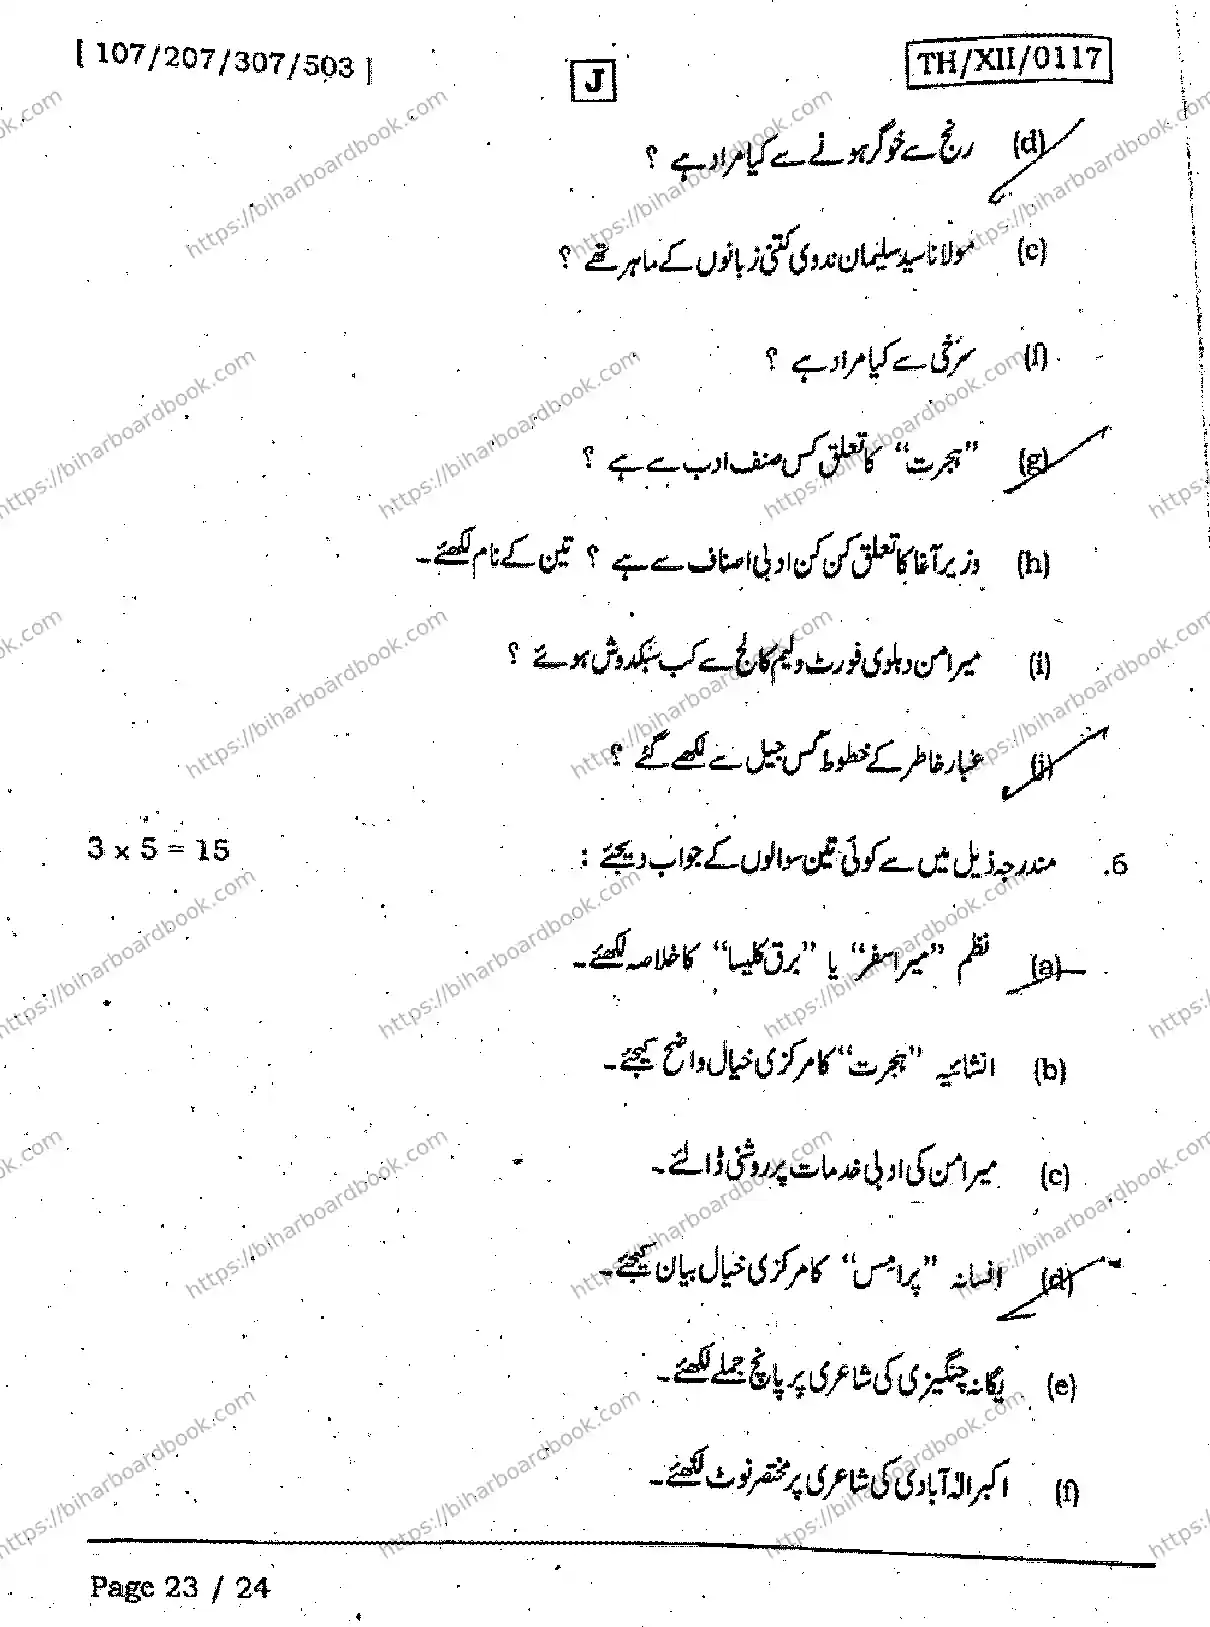 [ 107/207/307/503 ]
J
TH/XII/0117
(d) رنج سے خوگر ہونے سے کیا مراد ہے ؟
(e) مولانا سید سلیمان ندوی کتنی زبانوں کے ماہر تھے ؟
(f) سرخی سے کیا مراد ہے ؟
(g) “ہجرت” کا تعلق کس صنف ادب سے ہے ؟
(h) وزیر آغا کا تعلق کن کن ادبی اصناف سے ہے ؟ تین کے نام لکھئے۔
(i) میر امن دہلوی فورٹ ولیم کالج سے کب سبکدوش ہوئے ؟
(j) غبار خاطر کے خطوط کس جیل سے لکھے گئے ؟
6. مندرجہ ذیل میں سے کوئی تین سوالوں کے جواب دیجئے : 3 x 5 = 15
(a) نظم “میرا سفر” یا “برق کلیسا” کا خلاصہ لکھئے۔
(b) انشائیہ “ہجرت” کا مرکزی خیال واضح کیجئے۔
(c) میر امن کی ادبی خدمات پر روشنی ڈالئے۔
(d) افسانہ “پرامس” کا مرکزی خیال بیان کیجئے۔
(e) یگانہ چنگیزی کی شاعری پر پانچ جملے لکھئے۔
(f) اکبر الہ آبادی کی شاعری پر مختصر نوٹ لکھئے۔
Page 23 / 24
https://biharboardbook.com